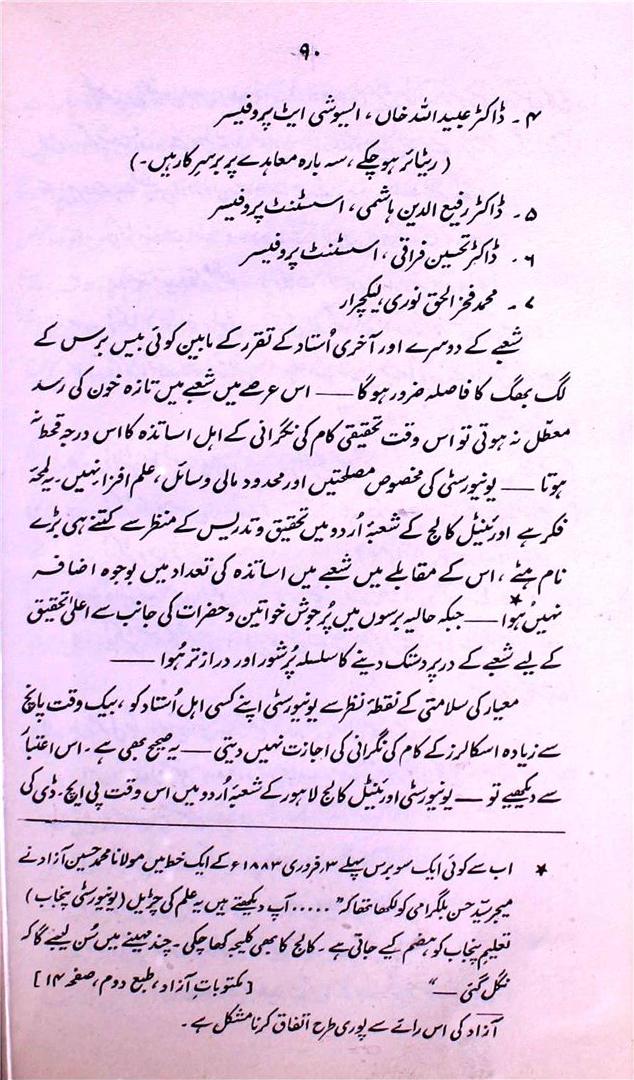 ۹۰
۴ ۔ ڈاکٹر عبید اللہ خاں ، ایسوشی ایٹ پروفیسر
( ریٹائر ہو چکے ، سہ بارہ معاہدے پر برسرِ کار ہیں ۔ )
۵ ۔ ڈاکٹر رفیع الدین ہاشمی ، اسسٹنٹ پروفیسر
۶ ۔ ڈاکٹر تحسین فراقی ، اسسٹنٹ پروفیسر
۷ ۔ محمد فخر الحق نوری ، لیکچرار
شعبے کے دوسرے اور آخری اُستاد کے تقرر کے مابین کوئی بیس برس کے
لگ بھگ کا فاصلہ ضرور ہو گا ــــ اس عرصے میں شعبے میں تازہ خون کی رسد
معطّل نہ ہوتی تو اس وقت تحقیقی کام کی نگرانی کے اہل اساتذہ کا اس درجہ قحط نہ
ہوتا ــــ یونیورسٹی کی مخصوص مصلحتیں اور محدود مالی وسائل ، علم افزا نہیں ۔ یہ لمحۂ
فکر ہے اورئینٹیل کالج کے شعبۂ اُردو میں تحقیق و تدریس کے منظر سے کتنے ہی بڑے
نام ہٹے ، اس کے مقابلے میں شعبے میں اساتذہ کی تعداد میں بوجوہ اضافہ
نہیں ہُوا * ــــ جبکہ حالیہ برسوں میں پُرجوش خواتین و حضرات کی جانب سے اعلیٰ تحقیق
کے لیے شعبے کے در پر دستک دینے کا سلسلہ پُر شور اور دراز تر ہُوا ــــ
معیار کی سلامتی کے نقطۂ نظر سے یونیورسٹی اپنے کسی اہل اُستاد کو ، بیک وقت پانچ
سے زیادہ اسکالرز کے کام کی نگرانی کی اجازت نہیں دیتی ــــ یہ صحیح بھی ہے ۔ اس اعتبار
سے دیکھیے تو ــــ یونیورسٹی اورئینٹیل کالج لاہور کے شعبۂ اُردو میں اس وقت پی ایچ ۔ ڈی کی
* اب سے کوئی ایک سو برس پہلے ۳ ، فروری ۱۸۸۳ء کے ایک خط میں مولانا محمد حسین آزاد نے
میجر سیّد حسن بلگرامی کو لکھا تھا کہ " ..... آپ دیکھتے ہیں یہ علم کی چڑیل ( یونیورسٹی پنجاب )
تعلیمِ پنجاب کو ہضم کیے جاتی ہے ۔ کالج کا بھی کلیجہ کھا چکی ۔ چند مہینے میں سُن لیجے گا کہ
نگل گئی ــــ " [ مکتوباتِ آزاد ، طبع دوم ، صفحہ ۱۴ ]
آزاد کی اس رائے سے پوری طرح اتفاق کرنا مشکل ہے ۔